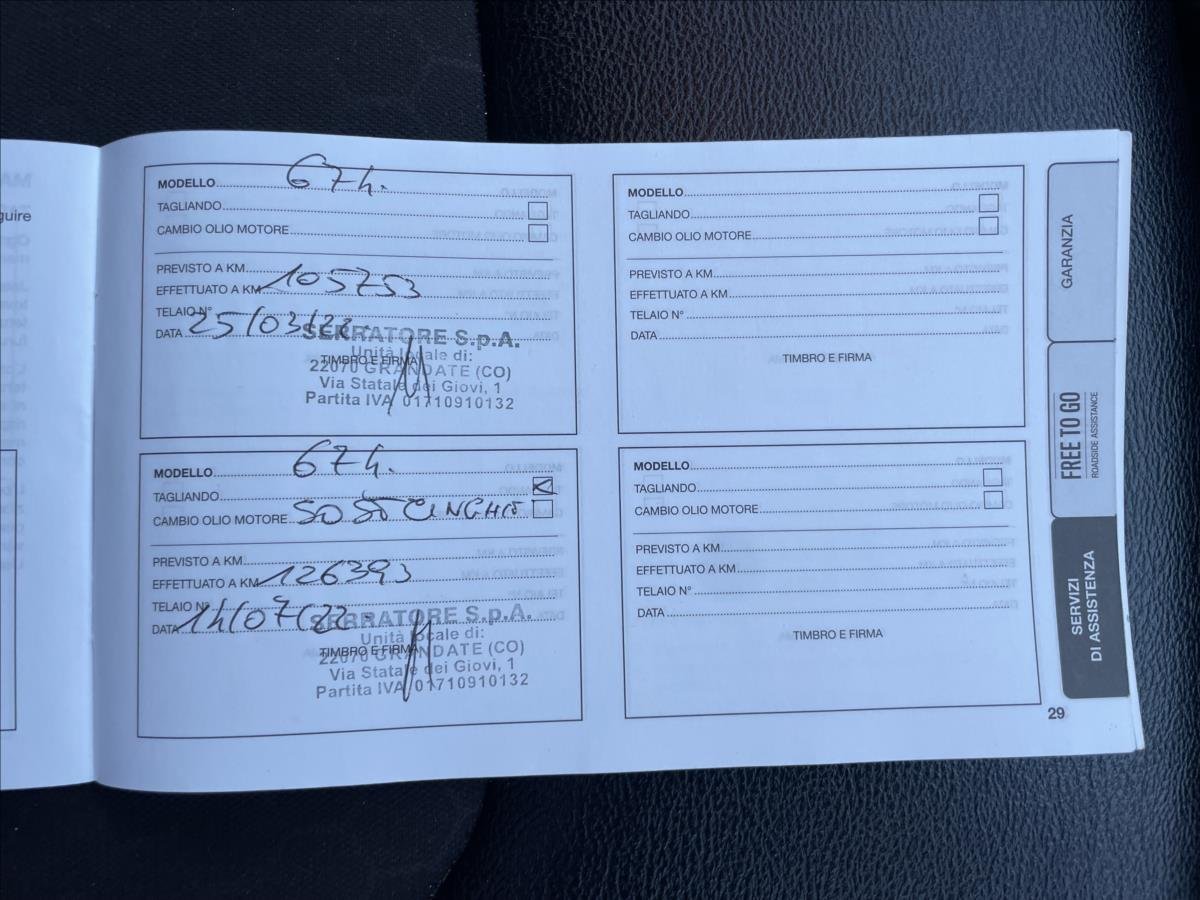 guire
MODELLO 67h.
TAGLIANDO
CAMBIO OLIO MOTORE
PREVISTO A KM
EFFETTUATO A KM 105753
TELAIO N°
DATA 25/03/22
SERRATORE S.p.A.
Unità locale di:
TIMBRO E FIRMA
22070 GRANDATE (CO)
Via Statale dei Giovi, 1
Partita IVA 01710910132
MODELLO 67h.
TAGLIANDO
CAMBIO OLIO MOTORE SOST CINGHIE
PREVISTO A KM
EFFETTUATO A KM 126393
TELAIO N°
DATA 14/07/22
SERRATORE S.p.A.
Unità locale di:
TIMBRO E FIRMA
22070 GRANDATE (CO)
Via Statale dei Giovi, 1
Partita IVA 01710910132
MODELLO
TAGLIANDO
CAMBIO OLIO MOTORE
PREVISTO A KM
EFFETTUATO A KM
TELAIO N°
DATA
TIMBRO E FIRMA
MODELLO
TAGLIANDO
CAMBIO OLIO MOTORE
PREVISTO A KM
EFFETTUATO A KM
TELAIO N°
DATA
TIMBRO E FIRMA
GARANZIA
FREE TO GO
ROADSIDE ASSISTANCE
SERVIZI
DI ASSISTENZA
29